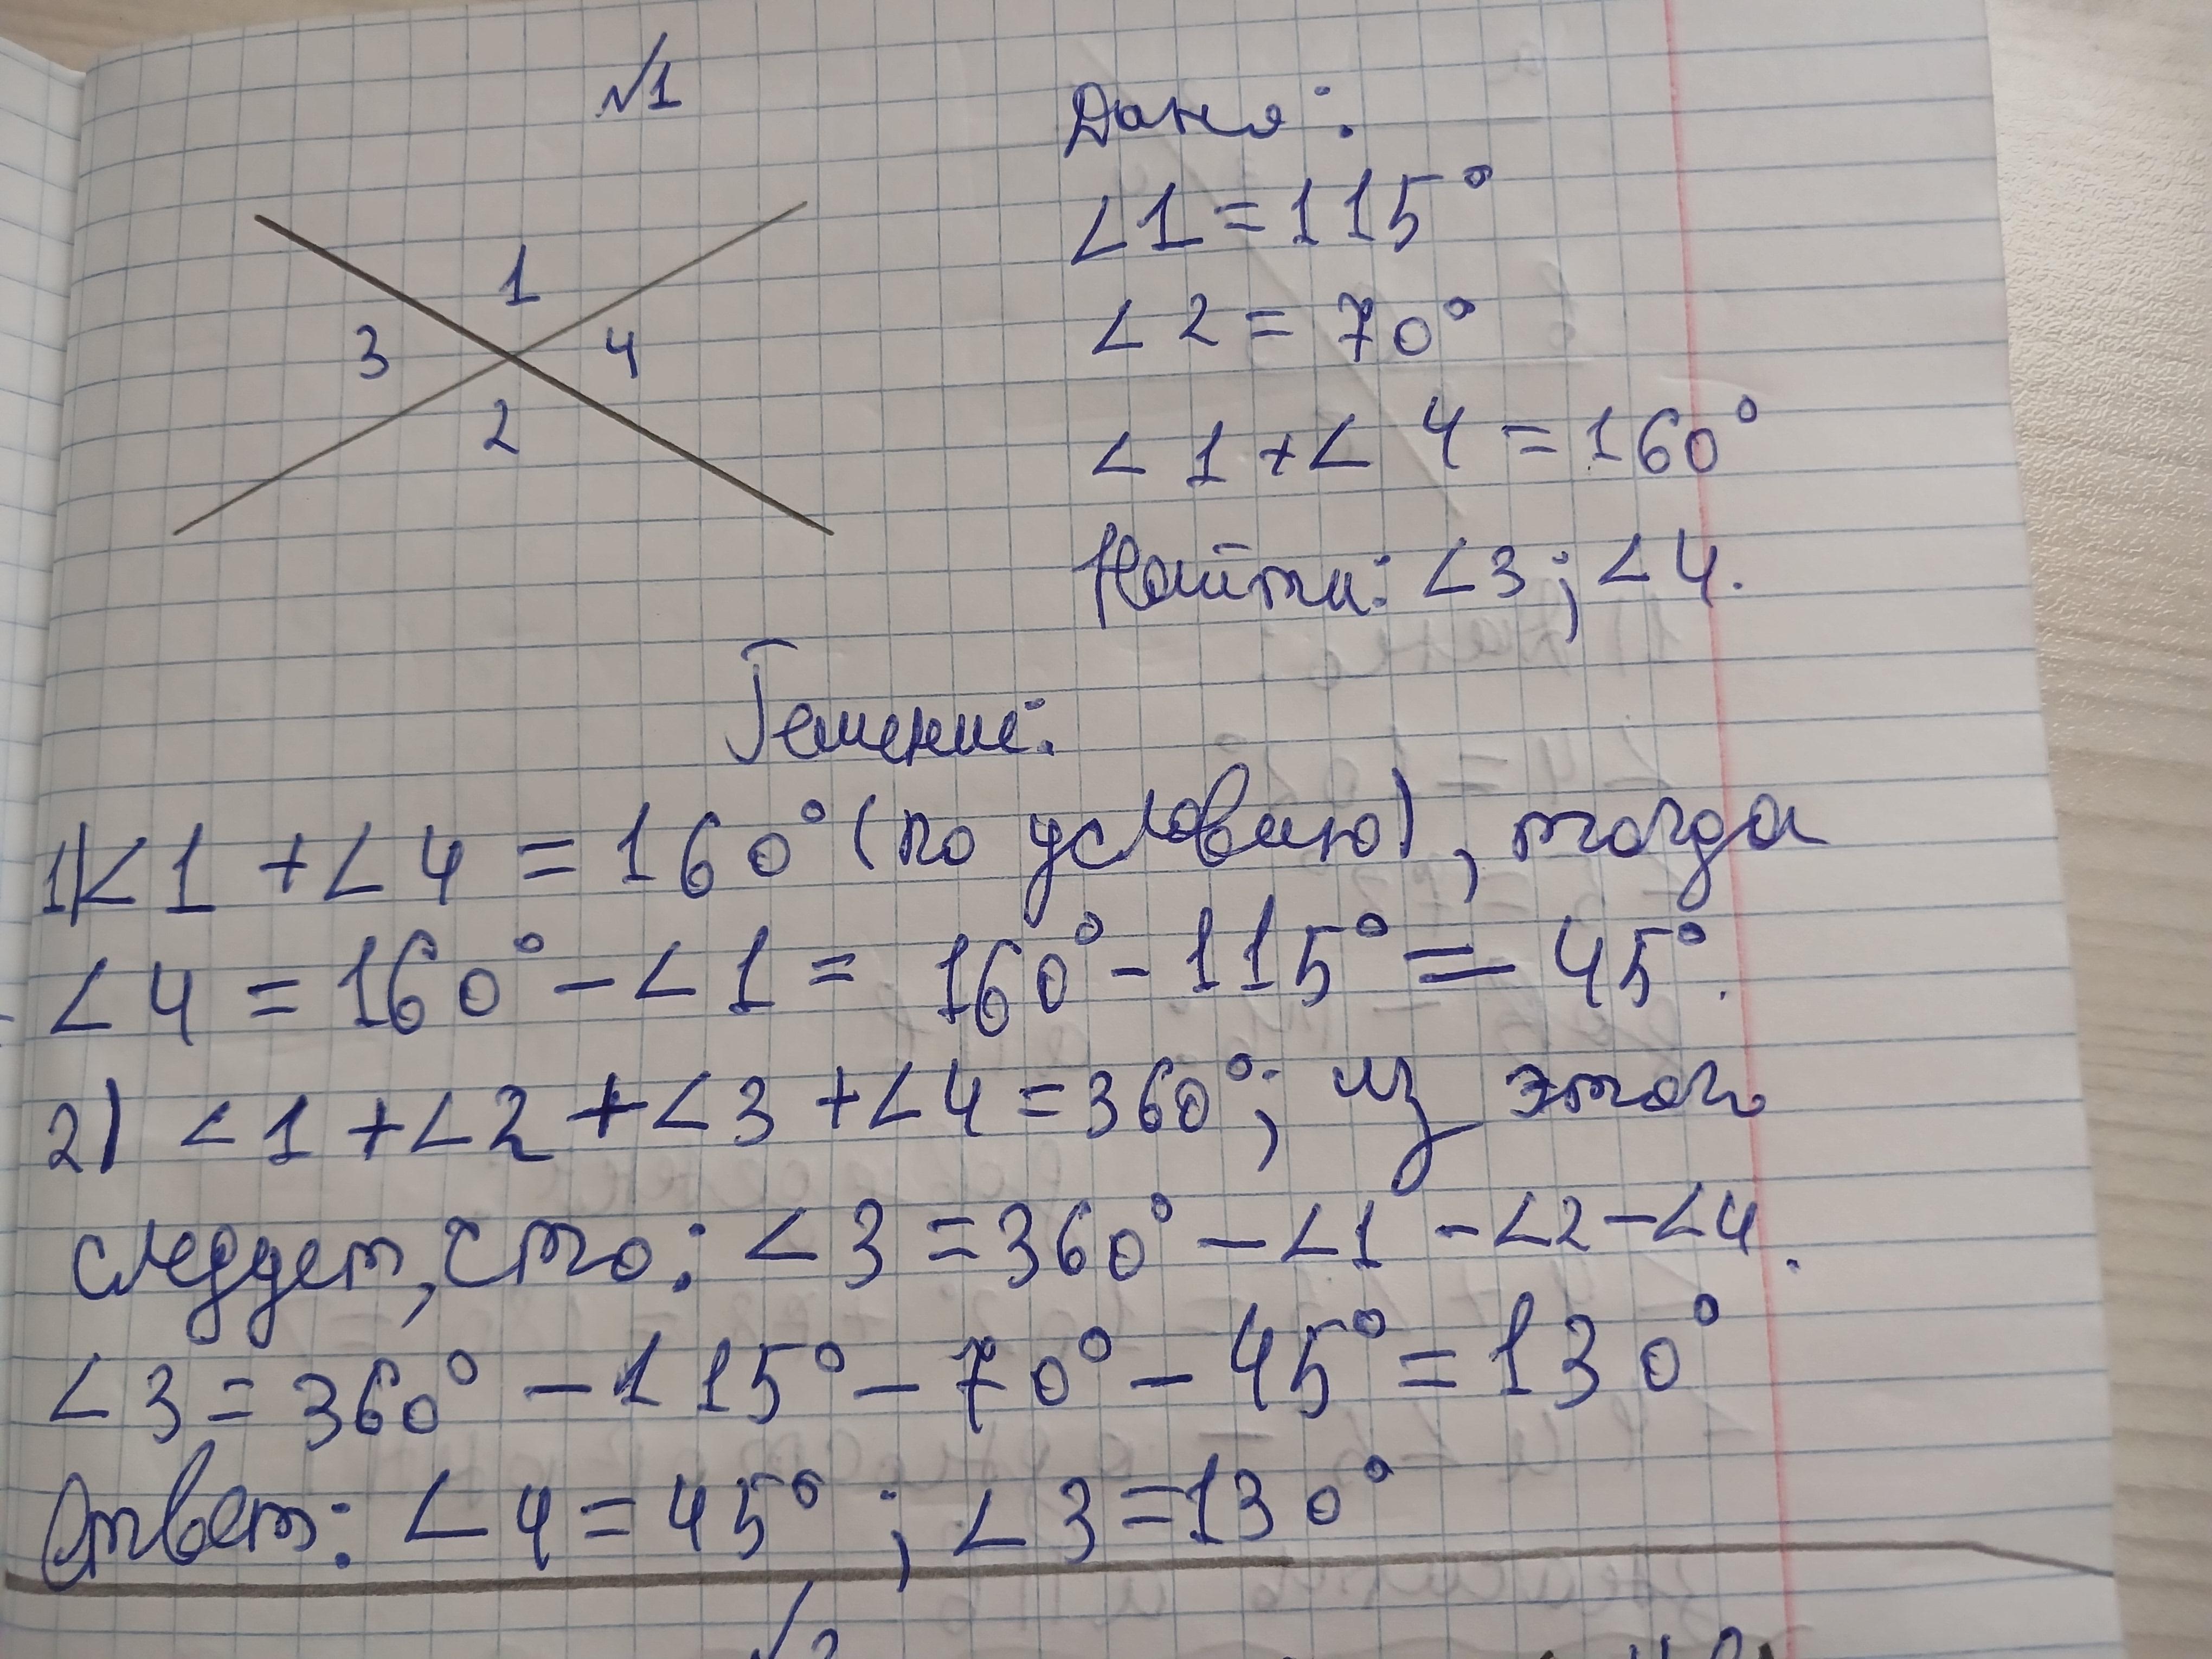 №1
Дано:
∠1=115°
∠2=70°
∠1+∠4=160°
Найти: ∠3; ∠4.
1
3 4
2
Решение:
1) ∠1+∠4=160° (по условию), тогда
∠4=160°-∠1=160°-115°=45°.
2) ∠1+∠2+∠3+∠4=360°; из этого
следует, что: ∠3=360°-∠1-∠2-∠4.
∠3=360°-115°-70°-45°=130°
Ответ: ∠4=45°; ∠3=130°